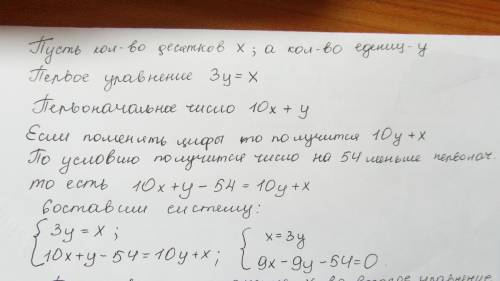 Пусть кол-во десятков x; а кол-во едениц-y
Первое уравнение 3y=x
Первоначальное число 10x+y
Если поменять цифры то получится 10y+x
По условию получится число на 54 меньше первонач.
то есть 10x+y-54=10y+x
Составим систему:
{ 3y=x; { x=3y
10x+y-54=10y+x; 9x-9y-54=0.
во второе уравнение